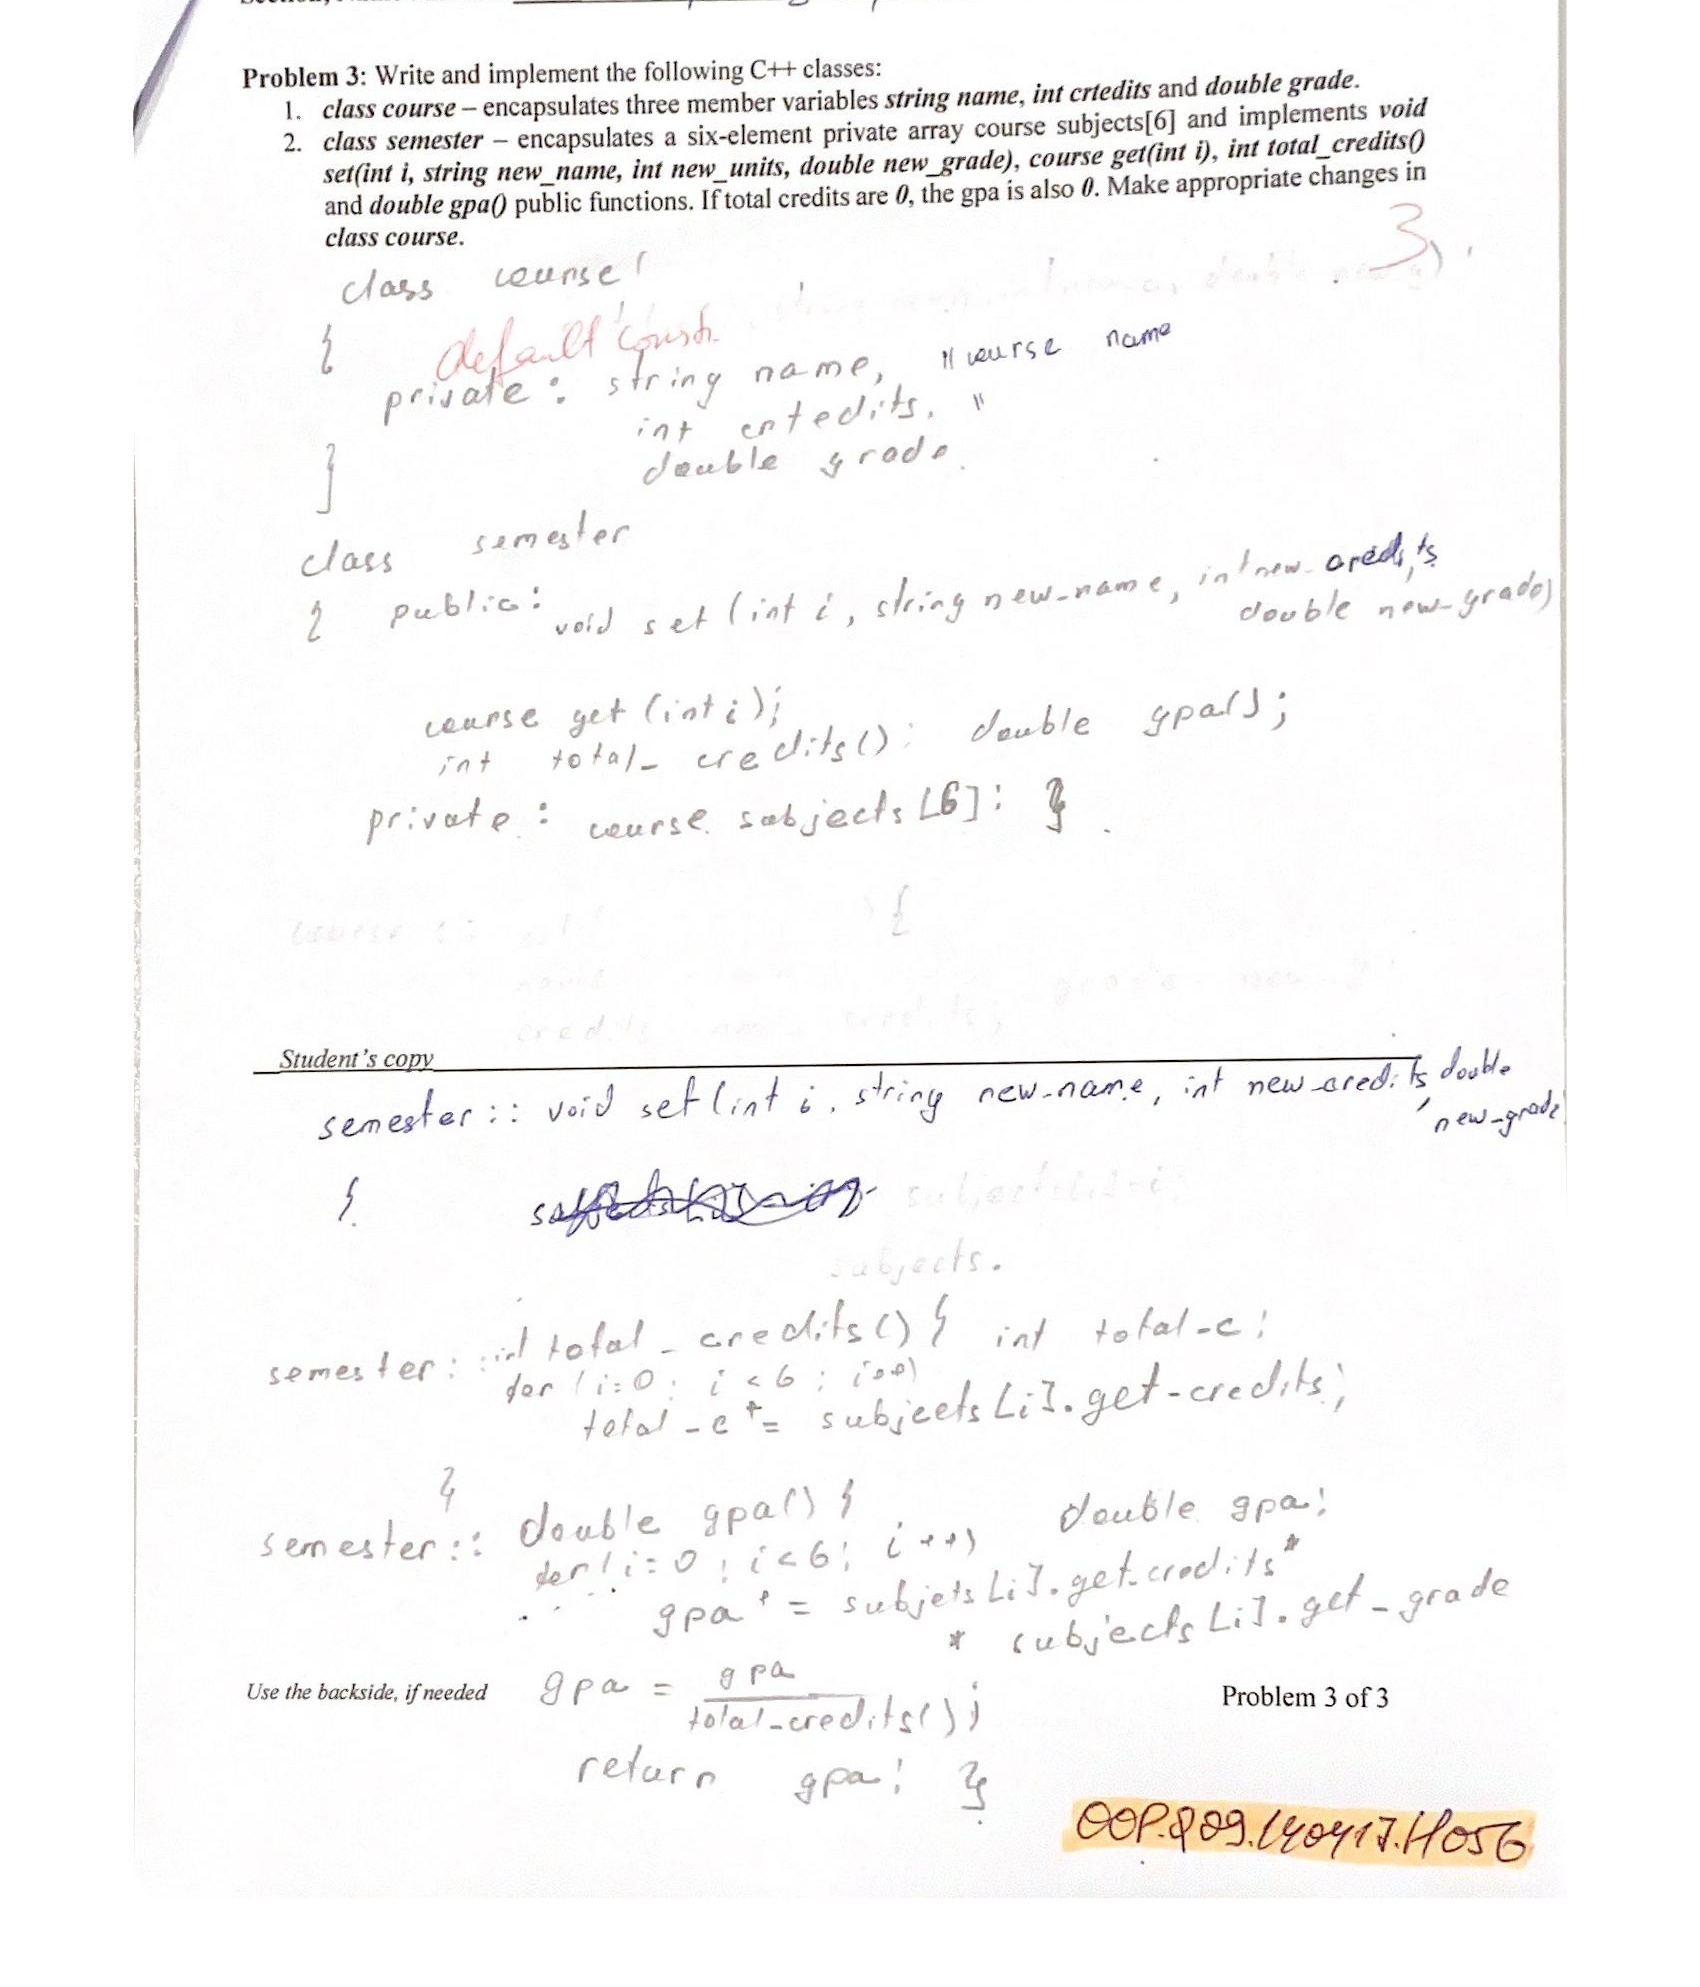 Problem 3: Write and implement the following C++ classes:
1. class course – encapsulates three member variables string name, int crtedits and double grade.
2. class semester – encapsulates a six-element private array course subjects[6] and implements void
set(int i, string new_name, int new_units, double new_grade), course get(int i), int total_credits()
and double gpa() public functions. If total credits are 0, the gpa is also 0. Make appropriate changes in
class course.
3
class course
{ default constr.
private: string name, // course name
int crtedits. //
double grade.
}
class semester
{ public: void set (int i, string new-name, int new-credits,
double new-grade)
course get (int i);
int total_credits(); double gpa();
private: course subjects [6]; }
{
Student's copy
semester :: void set (int i, string new-name, int new-credits, double
new-grade
{
subjects.
semester :: int total_credits() { int total-c;
for (i=0; i<6; i++)
total-c += subjects[i].get-credits;
}
semester :: double gpa() { double gpa;
for (i=0; i<6; i++)
gpa += subjets[i].get-credits*
* subjects[i].get-grade
Use the backside, if needed gpa = gpa Problem 3 of 3
total-credits();
return gpa; }